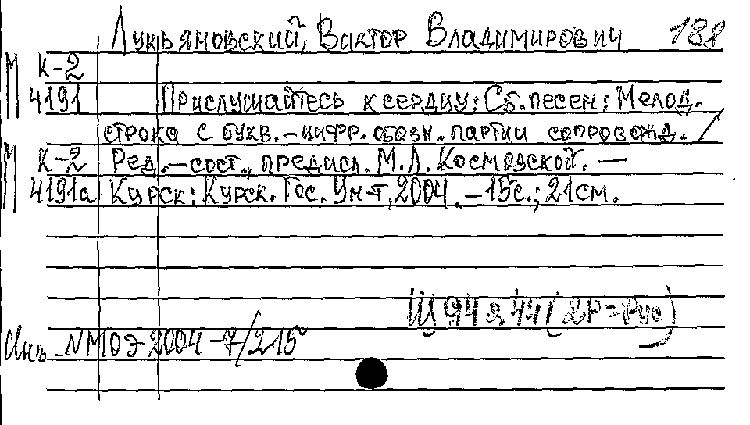 Лукьяновский, Виктор Владимирович 188
М К-2
4191 Прислушайтесь к сердцу: Сб. песен: Мелод.
строка с букв.-цифр. обозн. партии сопровожд. /
М К-2 Ред.-сост., предисл. М.Л. Космовской. —
4191а Курск: Курск. Гос. Ун-т, 2004. - 15с.; 21см.
Щ 94 я 44 (2Р-
Инв. NМОЭ 2004-7/215